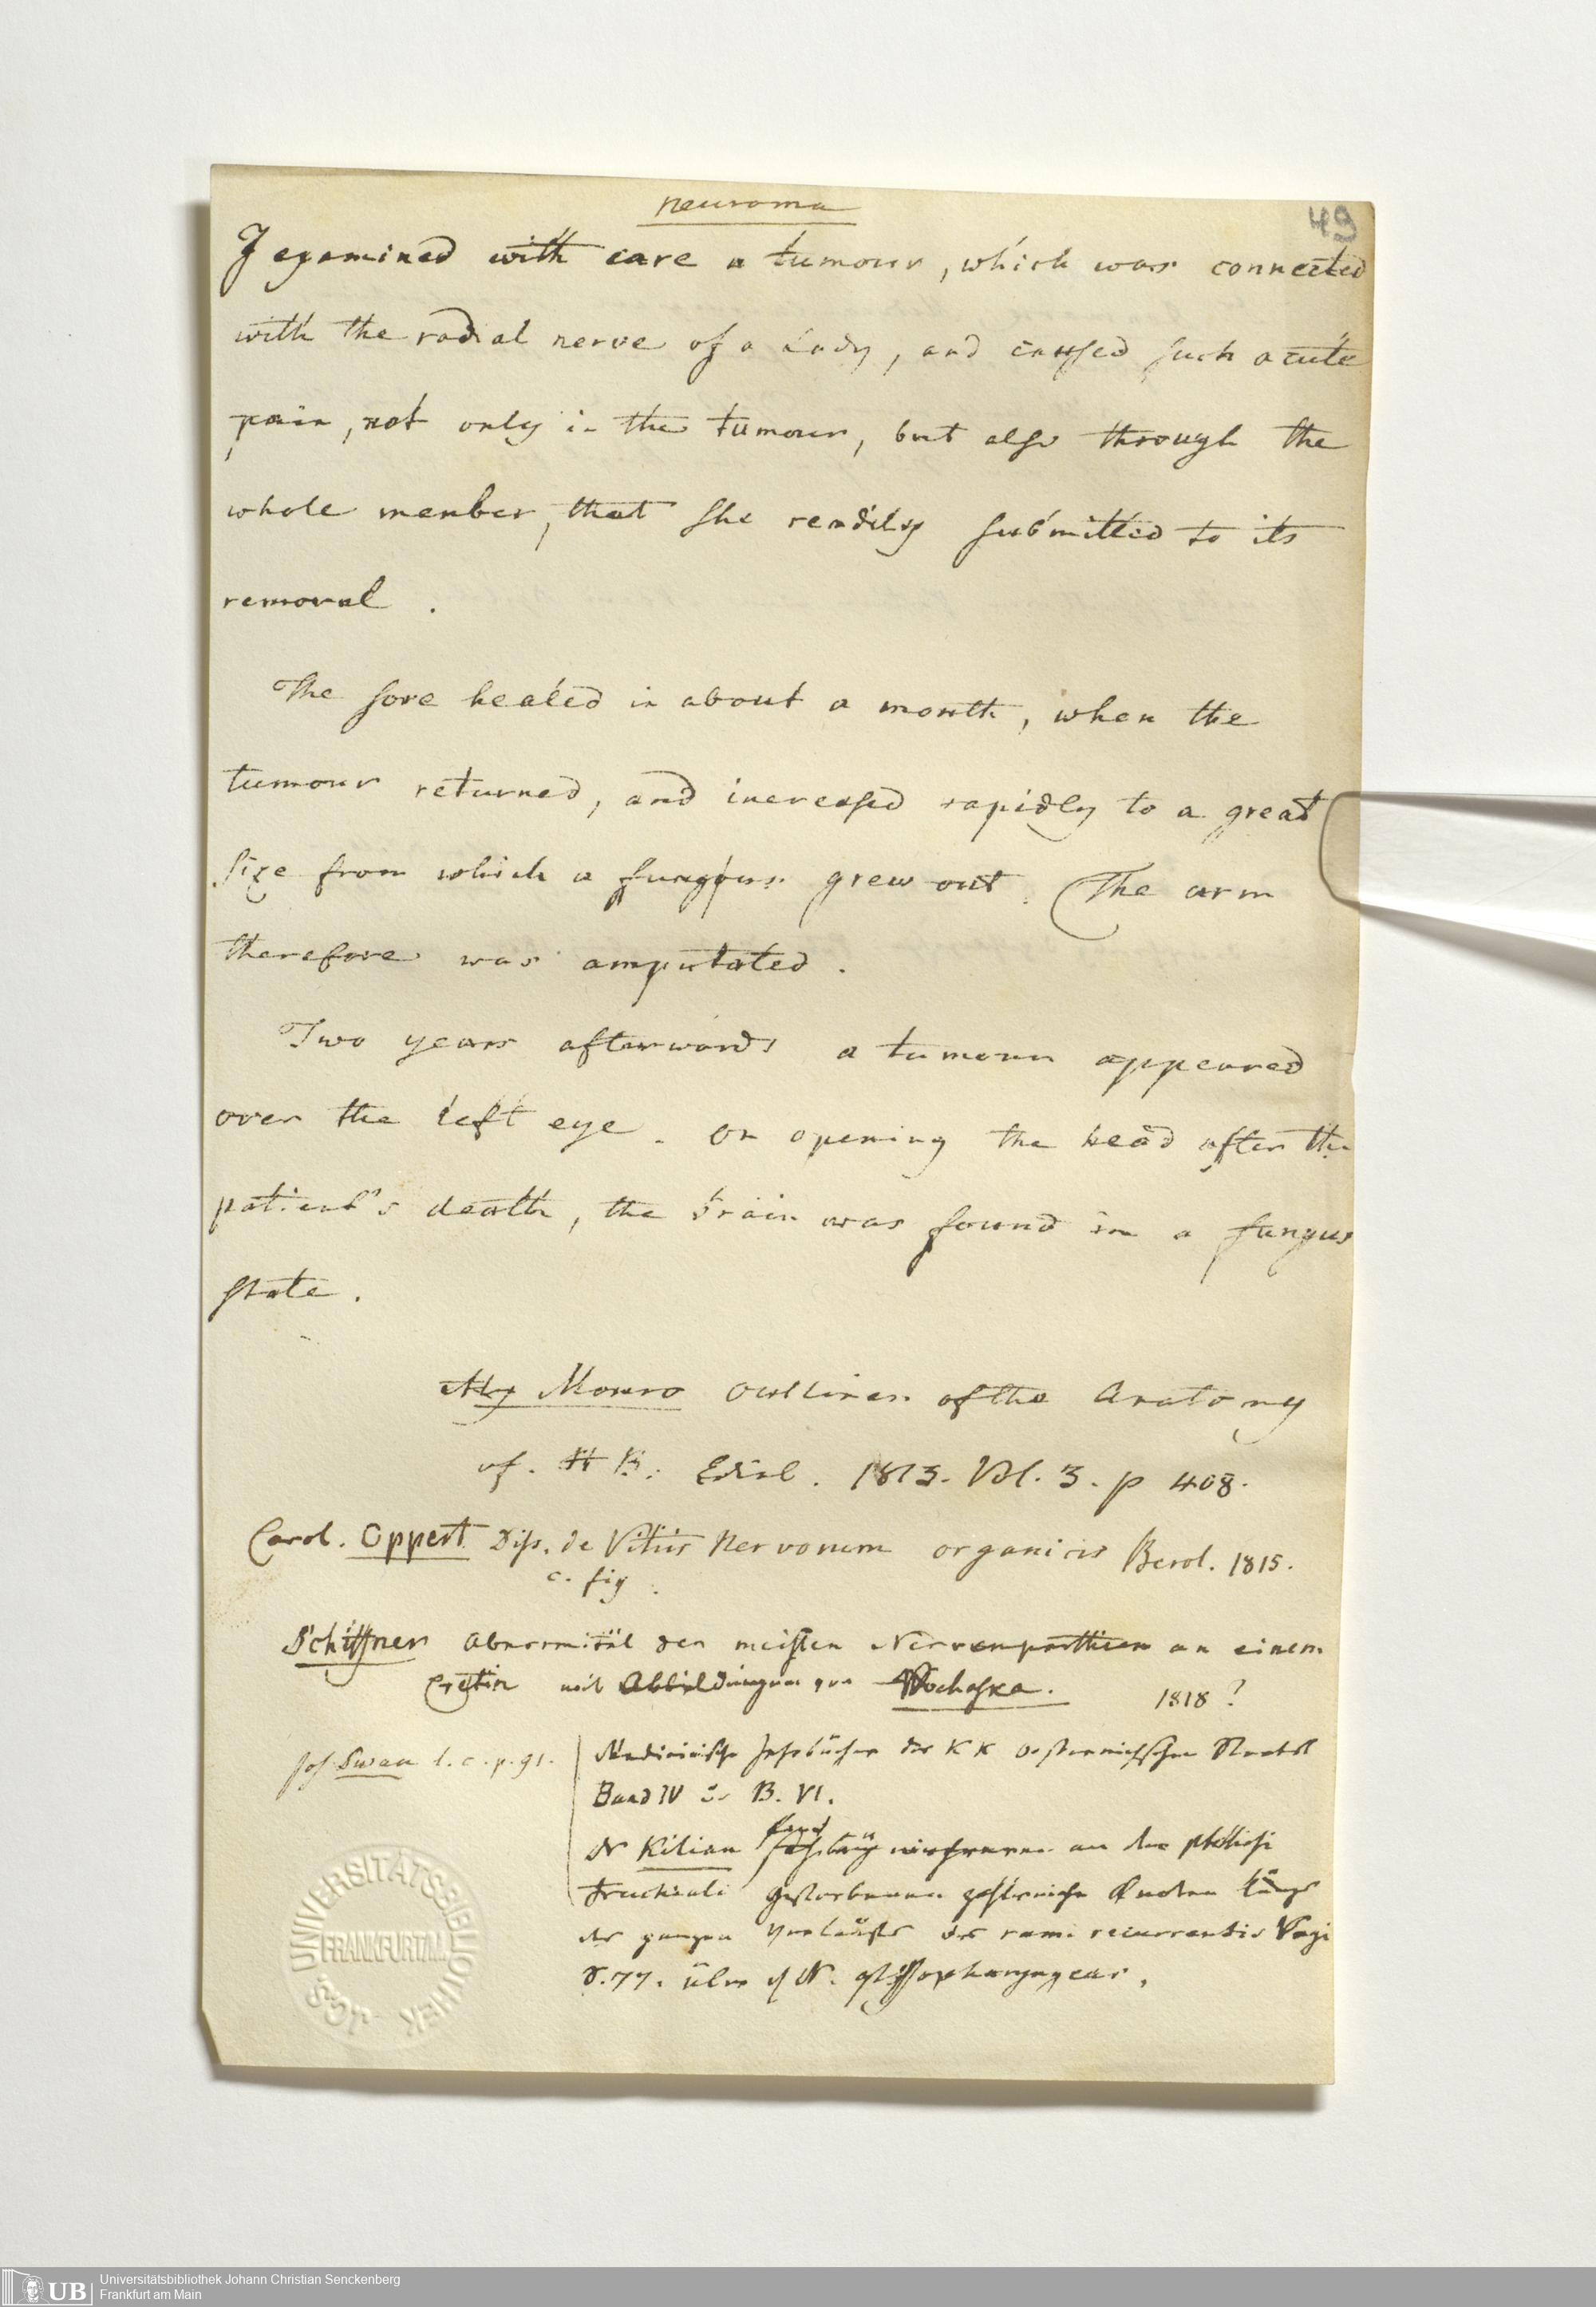 neuroma
49
I examined with care a tumour, which was connected
with the radial nerve of a Lady, and caussed such acute
pain, not only in the tumour, but also through the
whole member, that she readily submitted to its
removal.
The sore healed in about a month, when the
tumour returned, and increased rapidly to a great
size from which a fungus grew out. The arm
therefore was amputated.
Two years afterwards a tumour appeared
over the left eye. on opening the head after the
patient's death, the brain was found in a fungus
state.
Monro Outlines of the Anatomy
of. H B: Edinb. 1813. Vol. 3. p 408.
Carol. Oppert Diss. de Vitiis Nervorum organicis Berol. 1815.
c. fig.
Schiffner Abnormität der meisten Nervenparthieen an einem
Cretin mit Abbildungen von Prochaska. 1818?
Jos. Swan l. c. p. 91.
Medicinische Jahrbücher des K K Oesterreichischen Staats
Band IV B. VI.
Dr Kilian fand an der phthisi
trucheali gestorbenen zahlreiche Knoten längs
des ganzen Verlaufes des rami recurrentis Vagi
S. 77. über d N. glossopharyngeus.
UNIVERSITÄTSBIBLIOTHEK
FRANKFURT A.M.
JCS
UB
Universitätsbibliothek Johann Christian Senckenberg
Frankfurt am Main